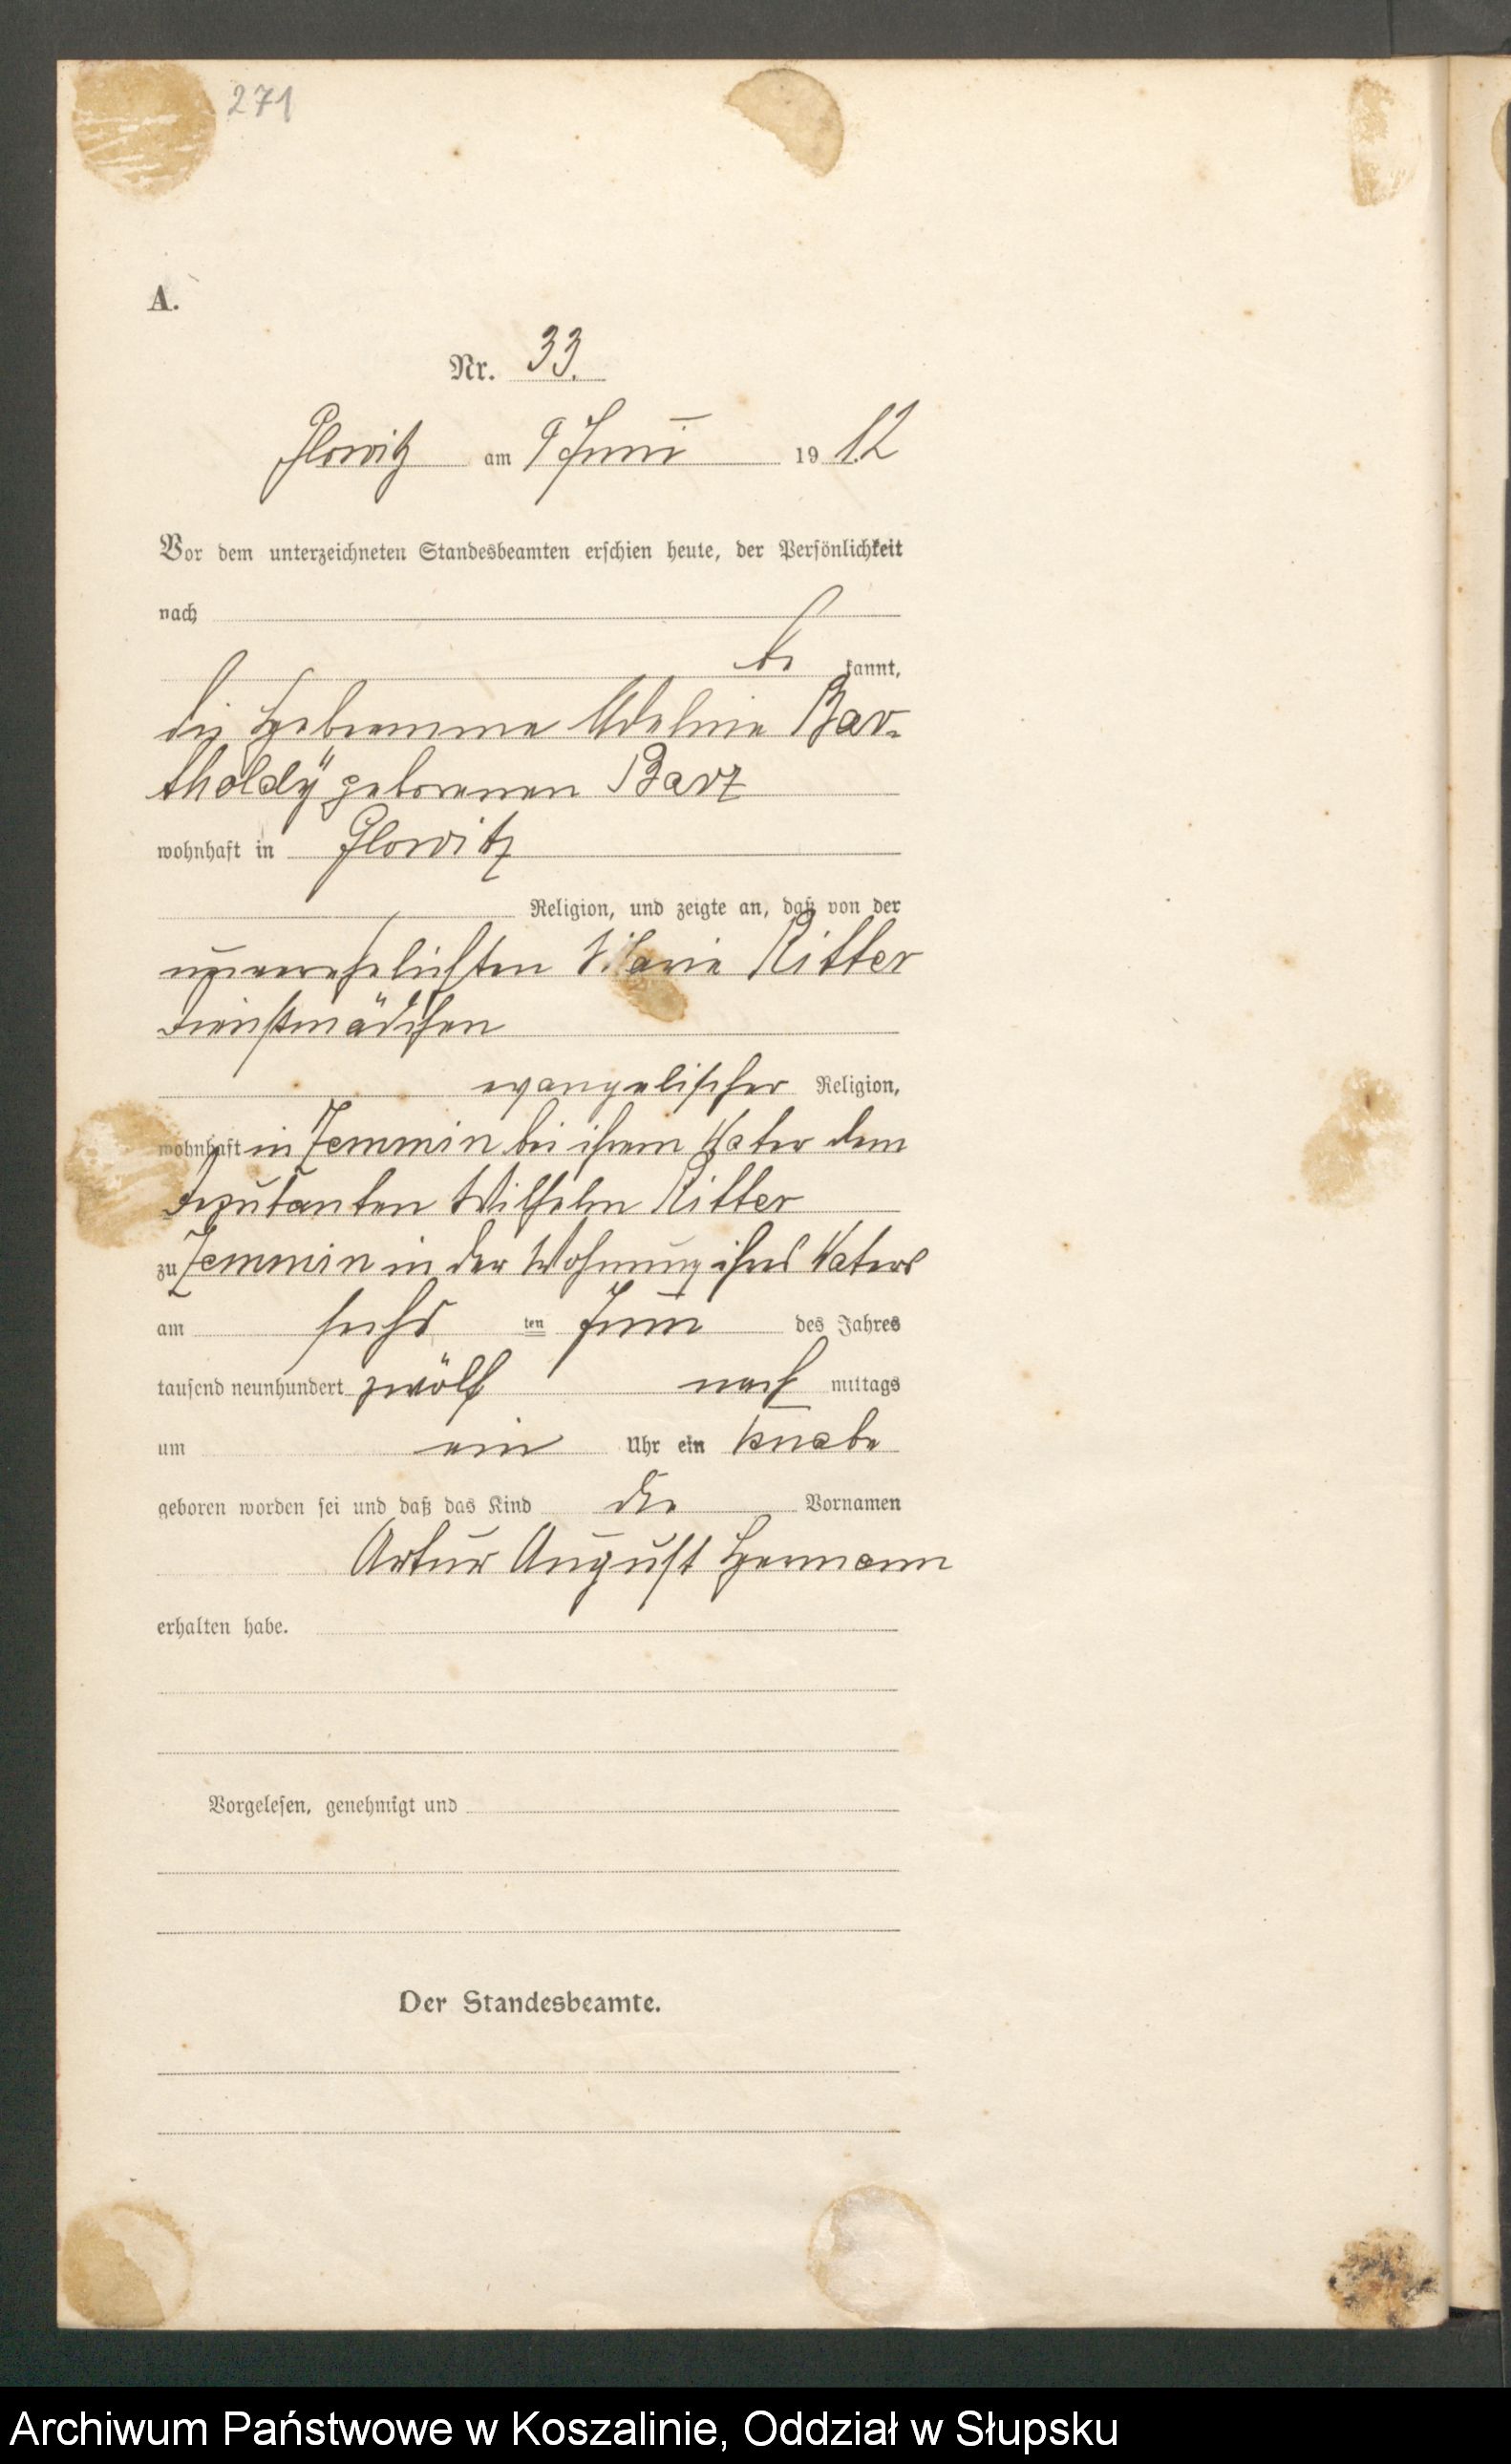 271
A.
Nr. 33.
Glowitz am 9 Juni 1912
Vor dem unterzeichneten Standesbeamten erschien heute, der Persönlichkeit
nach
be kannt,
die Hebeamme Adeline Bar-
tholdÿ geborenen Barz
wohnhaft in Glowitz
Religion, und zeigte an, daß von der
unverehelichten Marie Ritter
Dienstmädchen
evangelischer Religion,
wohnhaft in Zemmin bei ihrem Vater dem
Deputanten Wilhelm Ritter
zu Zemmin in der Wohnung ihres Vaters
am sechs ten Juni des Jahres
tausend neunhundert zwölf nach mittags
um ein Uhr ein Knabe
geboren worden sei und daß das Kind die Vornamen
Artur August Hermann
erhalten habe.
Vorgelesen, genehmigt und
Der Standesbeamte.
Archiwum Państwowe w Koszalinie, Oddział w Słupsku